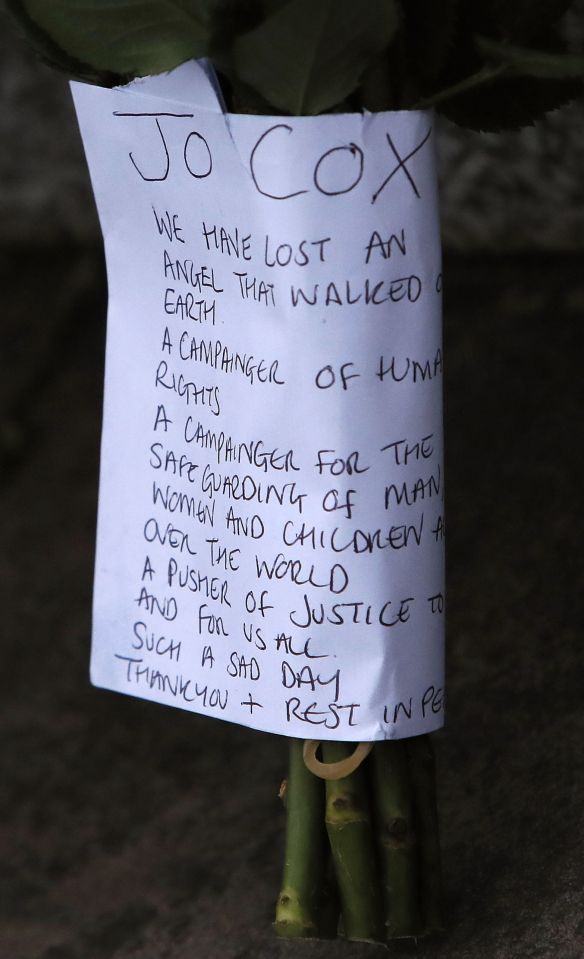 JO COX
WE HAVE LOST AN
ANGEL THAT WALKED
EARTH.
A CAMPAINGER OF HUMA
RIGHTS
A CAMPAINGER FOR THE
SAFEGUARDING OF MAN,
WOMEN AND CHILDREN A
OVER THE WORLD
A PUSHER OF JUSTICE TO
AND FOR US ALL.
SUCH A SAD DAY
THANKYOU + REST IN PE